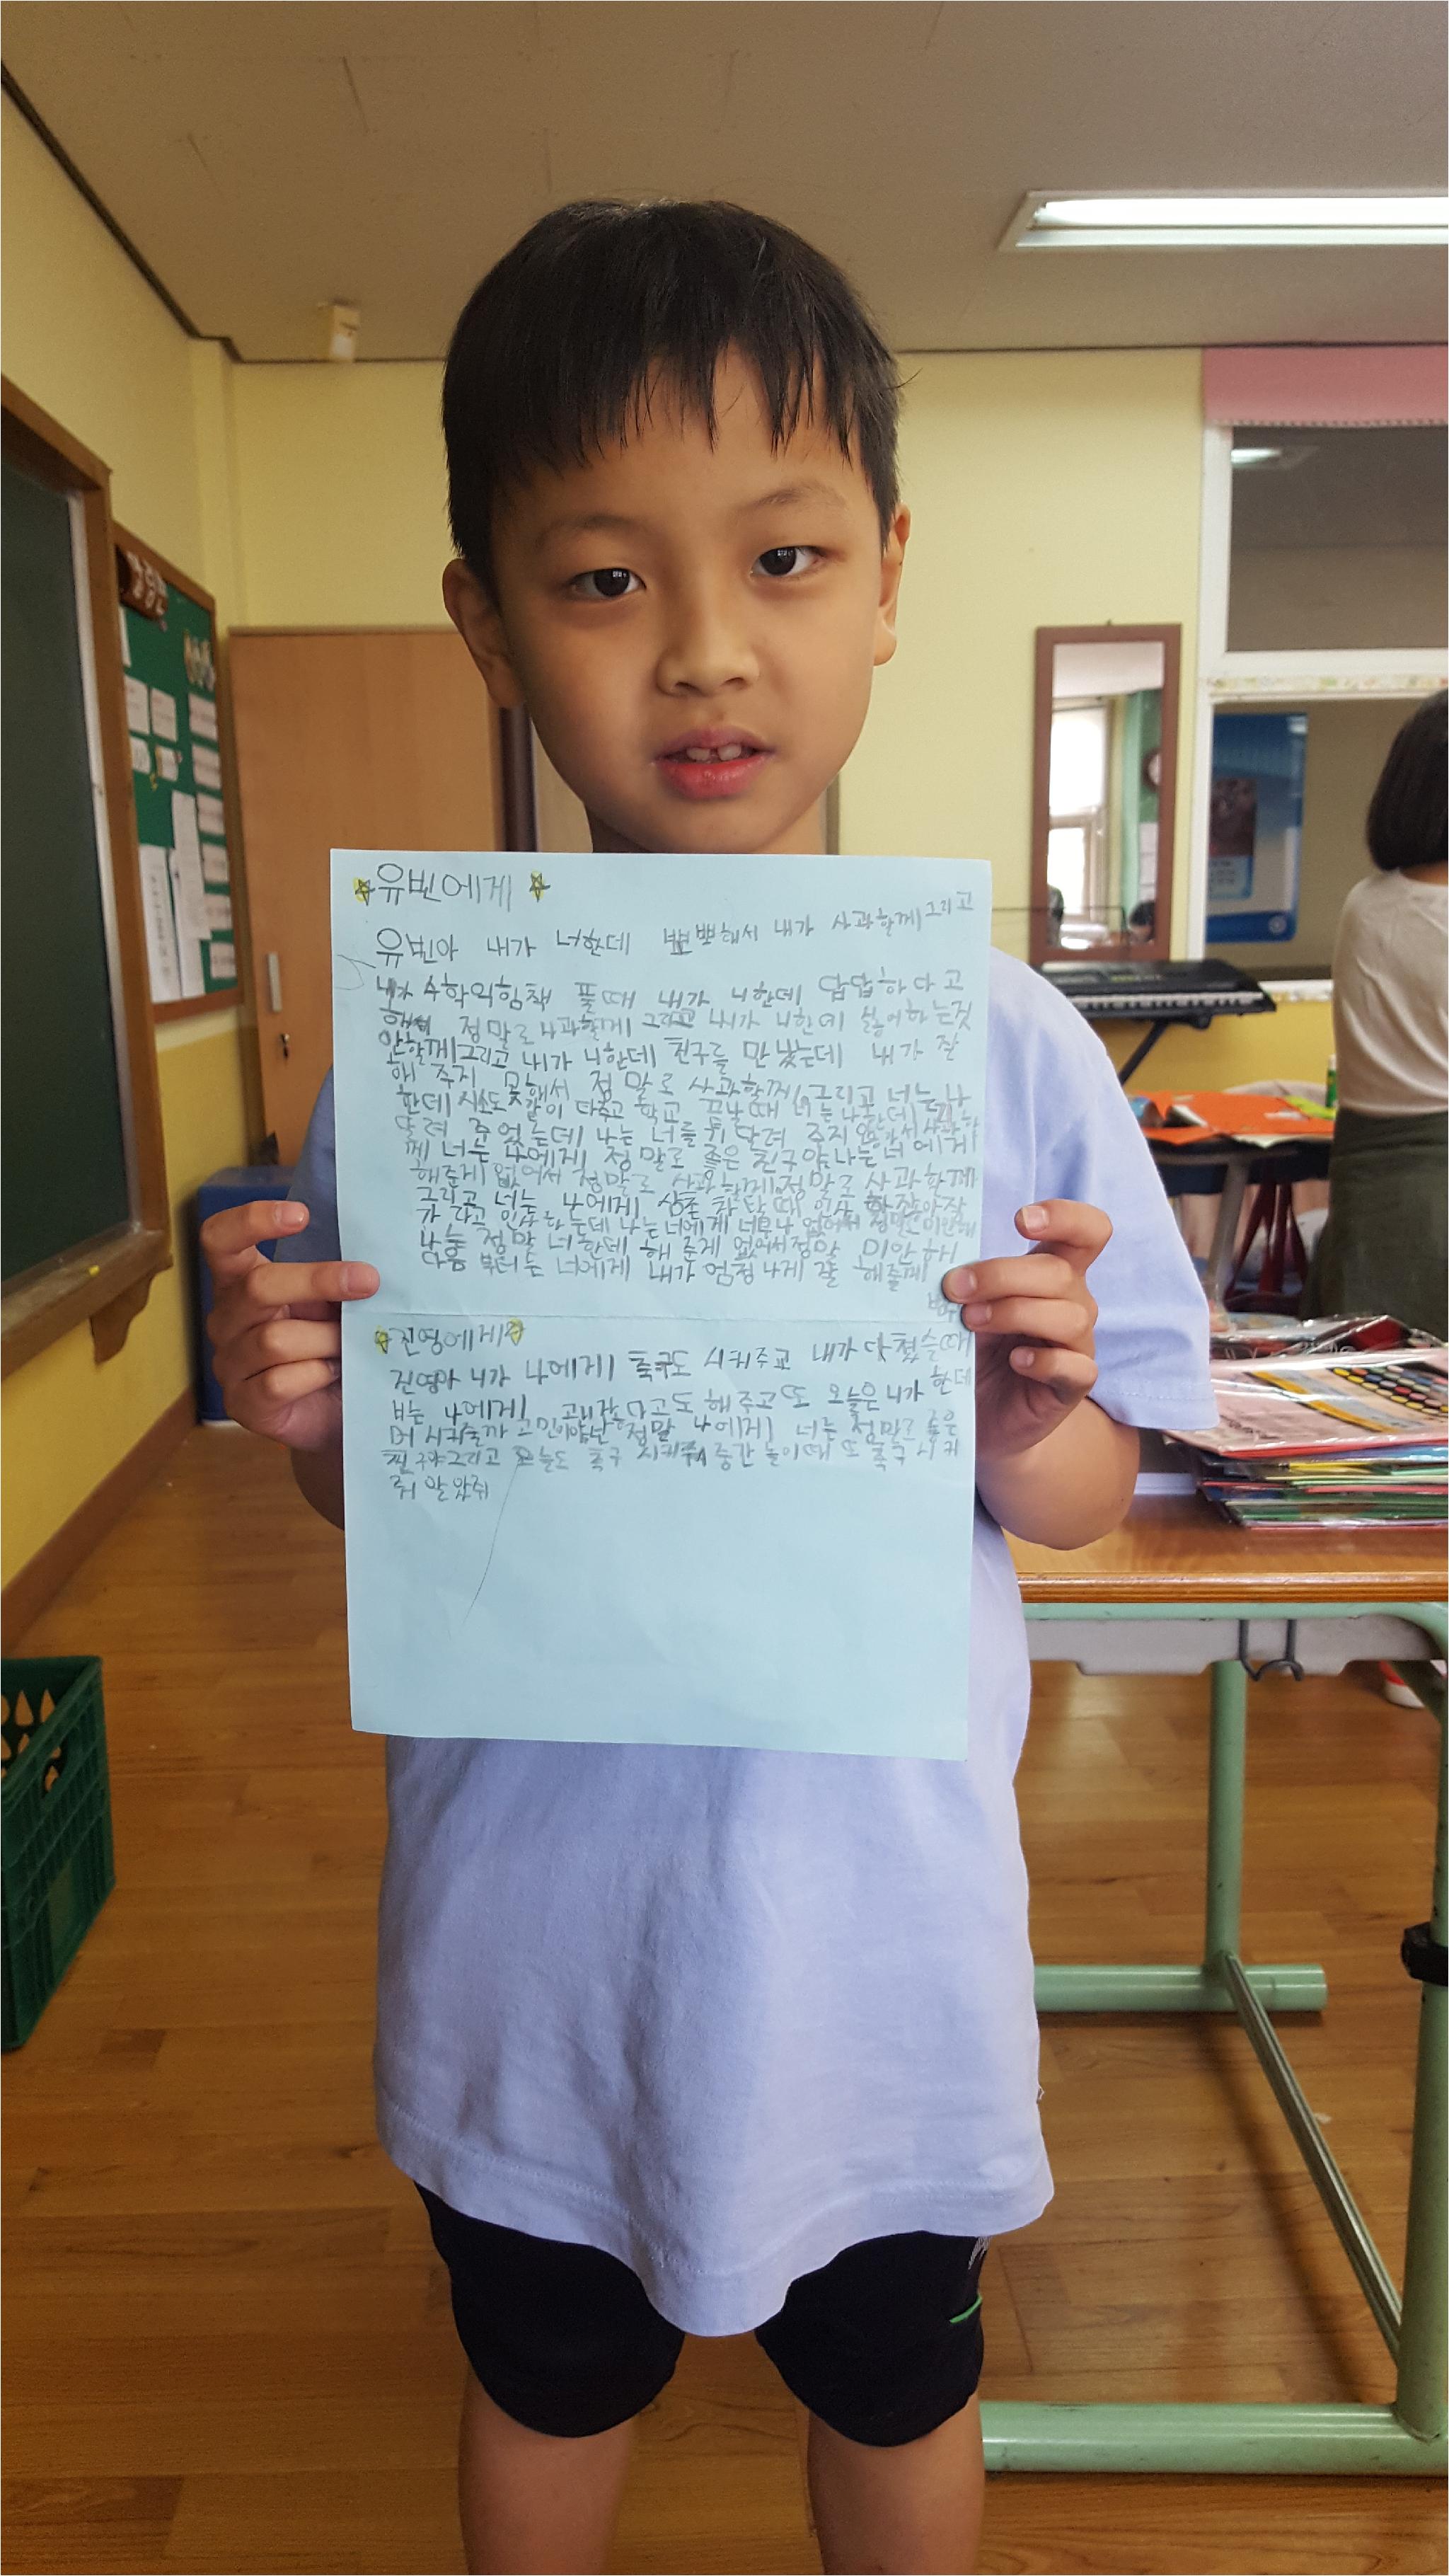 유빈에게
유빈아 내가 너한데 뽀뽀해서 내가 사과할께 그리고
내가 수학익힘책 풀때 내가 너한데 답답하다고
해서 정말로 사과할께 그리고 내가 너한데 싫어하는짓
안할께 그리고 내가 너한데 친구를 만 났는데 내가 잘
해 주지 못해서 정말로 사과할께 그리고 너는 나
한데 시소도 같이 타주고 학교 끝날때 너는 나한데
달려 주었는데 나는 너를 달려 주지 않아서 사과할
께 너는 나에게 정말로 좋은 친구야 나는 너에게
해준게 없어서 정말로 사과할께 정말로 사과할께
그리고 너는 나에게 차 탈때 인사
가 라고 인사하는데 나는 너에게 너무나 없어서 정말 미안해
나는 정말 너한데 해 준게 없어서 정말 미안해
다음 부터는 너에게 내가 엄청나게 잘 해줄께
진영에게
진영아 니가 나에게 축구도 시켜주고 내가 다쳤슬때
너는 나에게 괜찮다고도 해주고 또 오늘은 니가 한데
머 시켜줄까 고민이야 넌 정말 나에게 너는 정말로 좋은
친구야 그리고 오늘도 축구 시켜줘 중간놀이때 또 축구 시켜
줘 알았줘